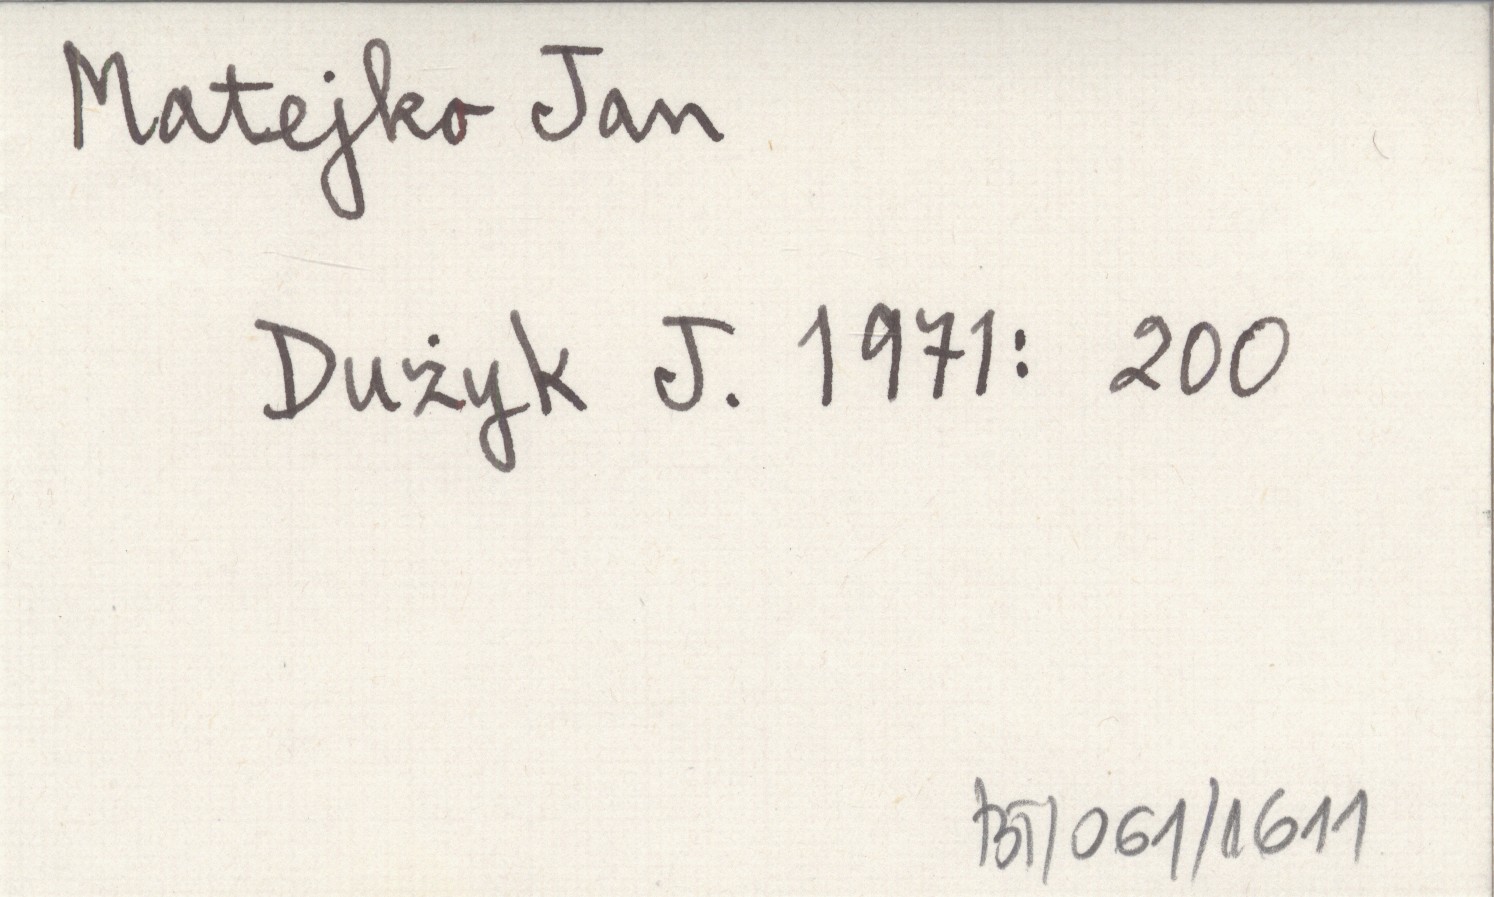 Matejko Jan
Dużyk J. 1971: 200
BT/061/1611